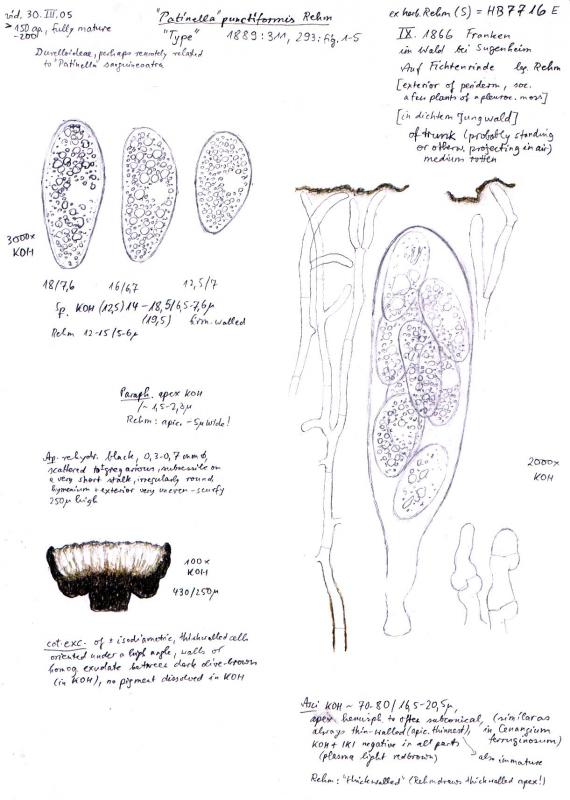 vid. 30.III.05
> 150 a, fully mature
-200
Durelloideae, perhaps remotely related
to "Patinella" sanguineoatra
"Patinella" punctiformis Rehm
"Type" 1889: 311, 293: fig. 1-5
ex herb. Rehm (S) = HB 7716 E
IX. 1866 Franken
im Wald bei Sugenheim
Auf Fichtenrinde lg. Rehm
[exterior of periderm, soc.
a few plants of a pleuroc. moss]
[in dichtem Jungwald]
of trunk (probably standing
or otherw. projecting in air)
medium rotten
3000x
KOH
18/7,6 16/6,7 12,5/7
Sp. KOH (12,5) 14-18,5/6,5-7,6µ
(19,5) firm-walled
Rehm 12-15/5-6µ
Paraph. apex KOH
/~1,5-2,3µ
Rehm: apic. -5µ wide!
Ap. rehydr. black, 0,3-0,7 mm ø,
scattered to gregarious, subsessile on
a very short stalk, irregularly round,
hymenium + exterior very uneven-scurfy
250µ high
100x
KOH
430/250µ
2000x
KOH
ect. exc. of ± isodiametric, thickwalled cells
oriented under a high angle, walls or
homog. exudate between dark olive-brown
(in KOH), no pigment dissolved in KOH
Asci KOH ~ 70-80/16,5-20,5µ,
apex hemisph. to often subconical, (similar as
always thin-walled (apic. thinnest), in Cenangium
KOH + IKI negative in all parts ferruginosum)
(plasma light redbrown) also immature
Rehm: "thickwalled" (Rehm draws thickwalled apex!)